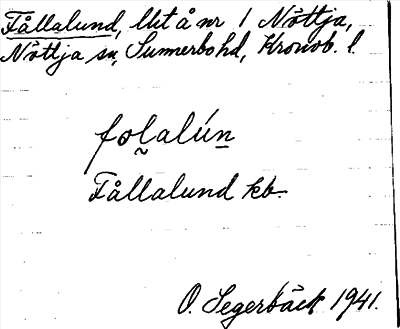 Fållalund, lht å nr 1 Nöttja,
Nöttja sn, Sunnerbo hd, Kronob. l.
folalún
Fållalund kb.
O. Segerbäck 1941.